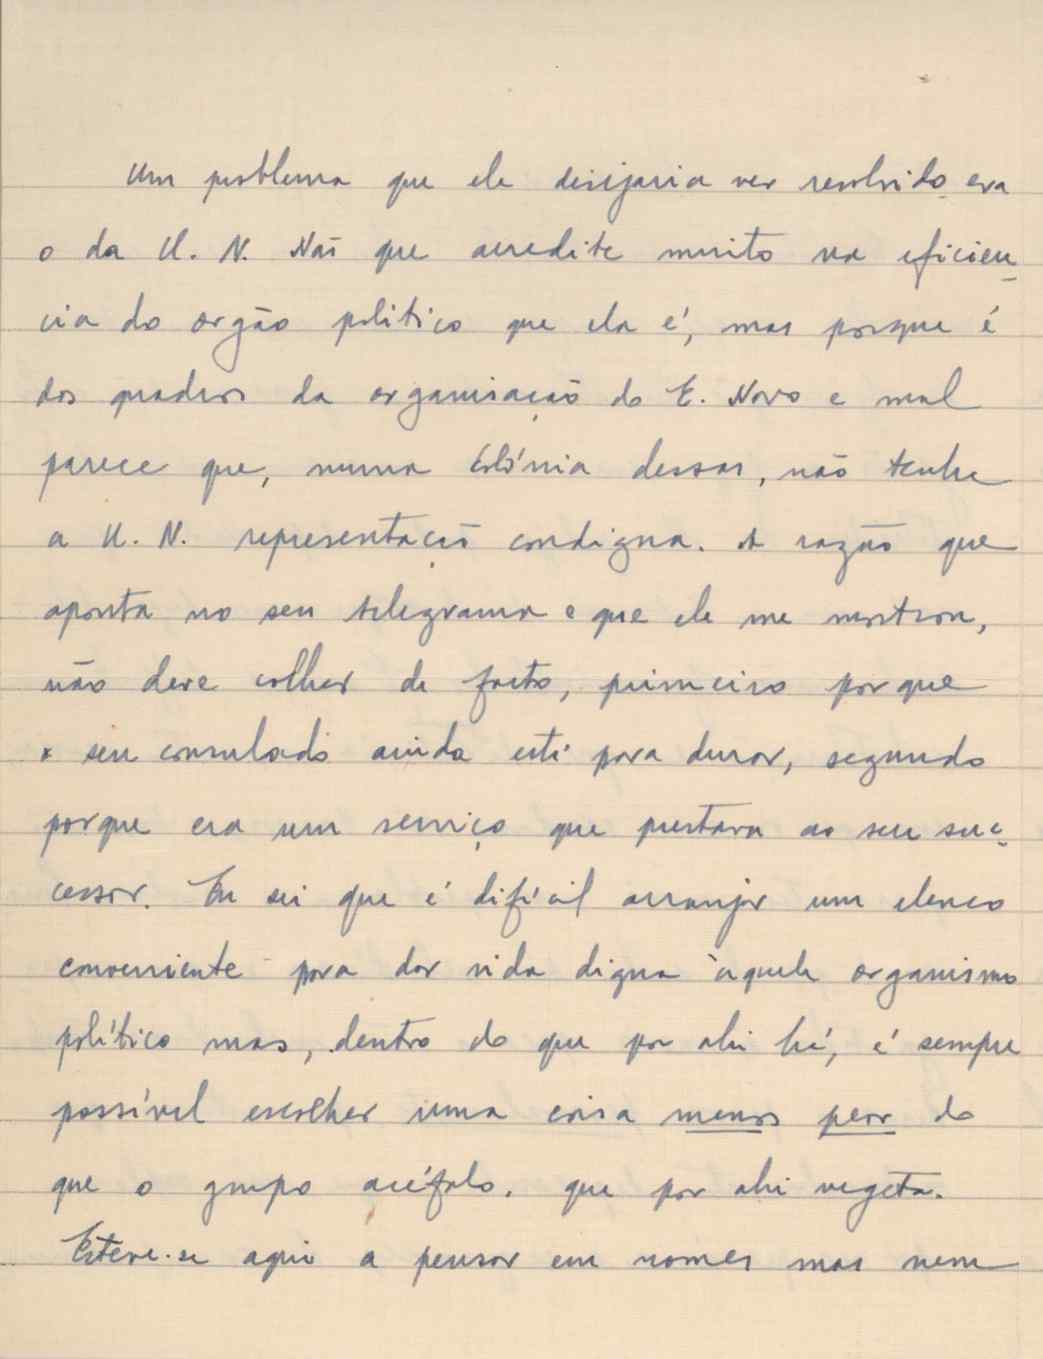 Um problema que ele desejaria ver resolvido era
o da U. N. Não que acredite muito na eficien-
cia do orgão politico que ela é, mas porque é
dos quadros da organisação do E. Novo e mal
parece que, numa Colónia dessas, não tenha
a U. N. representação condigna. A razão que
aponta no seu telegrama e que ele me mostrou,
não deve colher de facto, primeiro porque
o seu consulado ainda está para durar, segundo
porque era um serviço que prestava ao seu suc-
cessor. Eu sei que é difícil arranjar um elenco
conveniente para dar vida digna àquele organismo
político mas, dentro do que por ahi há, é sempre
possível escolher uma coisa menos peor do
que o grupo acéfalo, que por ahi vegeta.
Esteve-se aqui a pensar em nomes mas nem